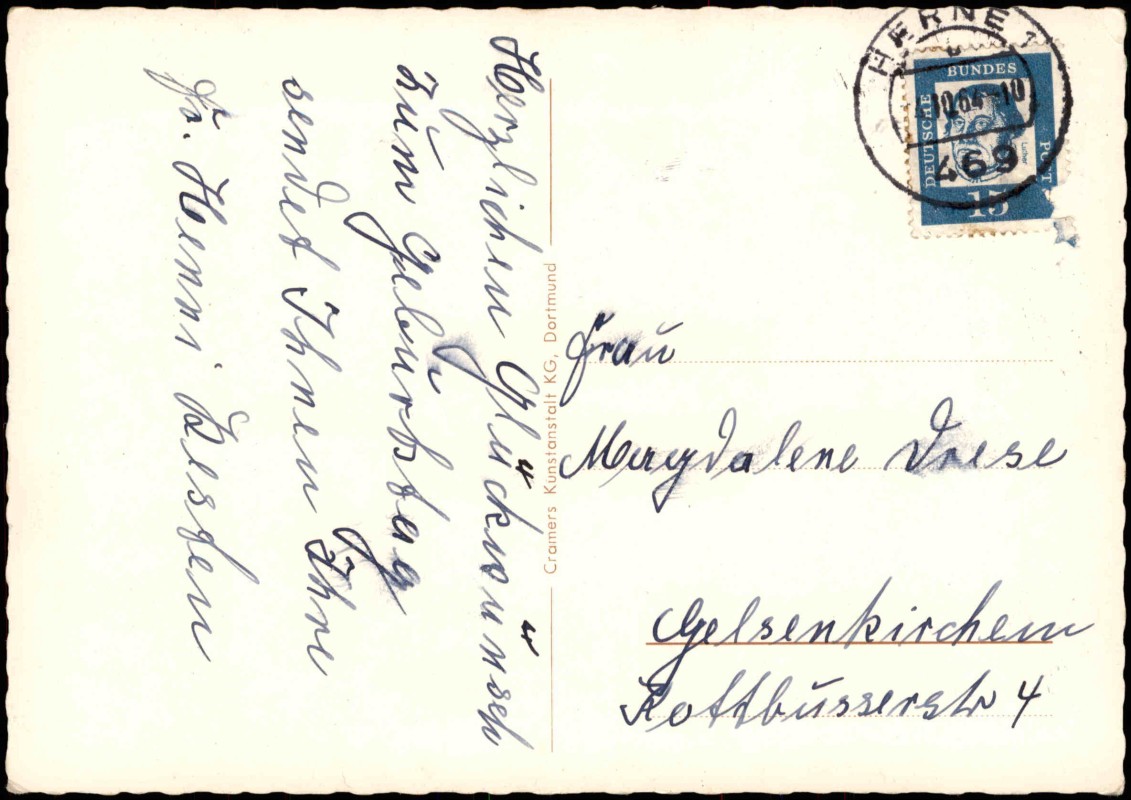 Herzlichen Glückwünsch
zum Geburtstag
sendet Ihnen Ihre
Fr. Henni Kesten
Cramers Kunstanstalt KG, Dortmund
HERNE 1
b
10.64-10
469
DEUTSCHE
BUNDES
POST
Luther
15
Frau
Magdalene Driese
Gelsenkirchen
Kottbusserstr 4